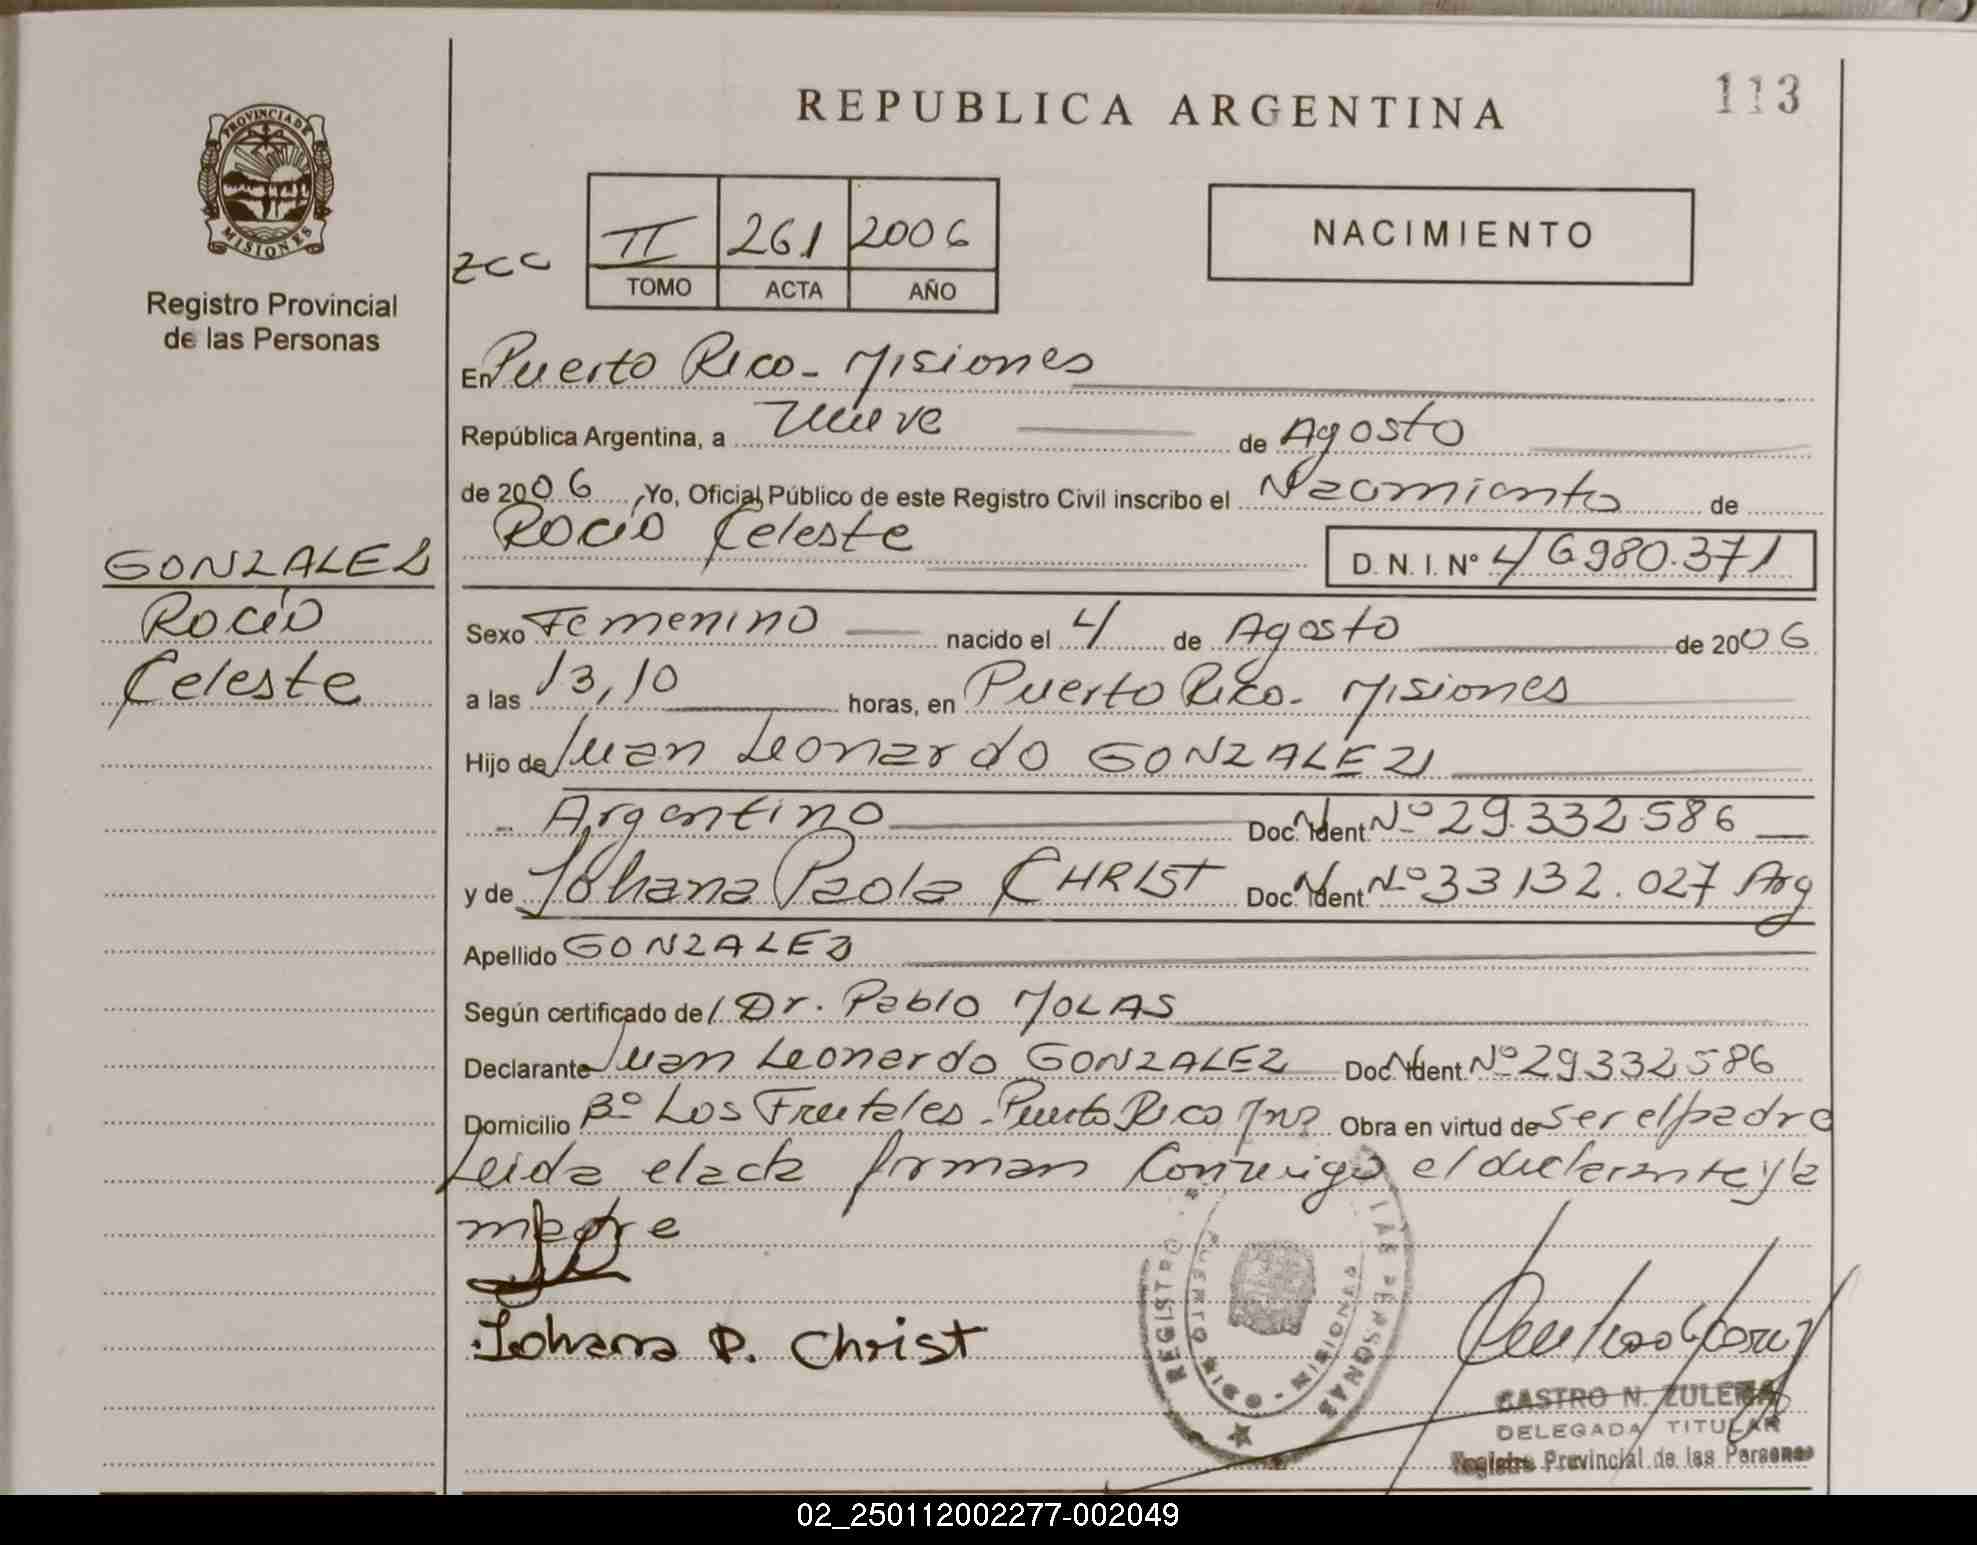 113
REPUBLICA ARGENTINA
PROVINCIA DE
MISIONES
Registro Provincial
de las Personas
II 261 2006
TOMO ACTA AÑO
NACIMIENTO
zcc
En Puerto Rico - Misiones
República Argentina, a nueve de Agosto
de 2006, Yo, Oficial Público de este Registro Civil inscribo el Nacimiento de
Rocío Celeste
D. N. I. Nº 46980.371
GONZALEZ
Rocío
Celeste
Sexo Femenino nacido el 4 de Agosto de 2006
a las 13,10 horas, en Puerto Rico - Misiones
Hijo de Juan Leonardo GONZALEZ
- Argentino Doc. Ident. Nº 29.332.586
y de Johana Paola CHRIST Doc. Ident. Nº 33132.027 Arg
Apellido GONZALEZ
Según certificado del Dr. Pablo MOLAS
Declarante Juan Leonardo GONZALEZ Doc. Ident. Nº 29332586
Domicilio Bº Los Frutales - Puerto Rico Mnes Obra en virtud de ser el padre
Leida el acta firman conmigo el declarante y la
madre
Johana P. Christ
REGISTRO LAS PERSONAS
PUERTO RICO - MISIONES
CASTRO N. ZULEMA
DELEGADA TITULAR
Registro Provincial de las Personas
02_250112002277-002049